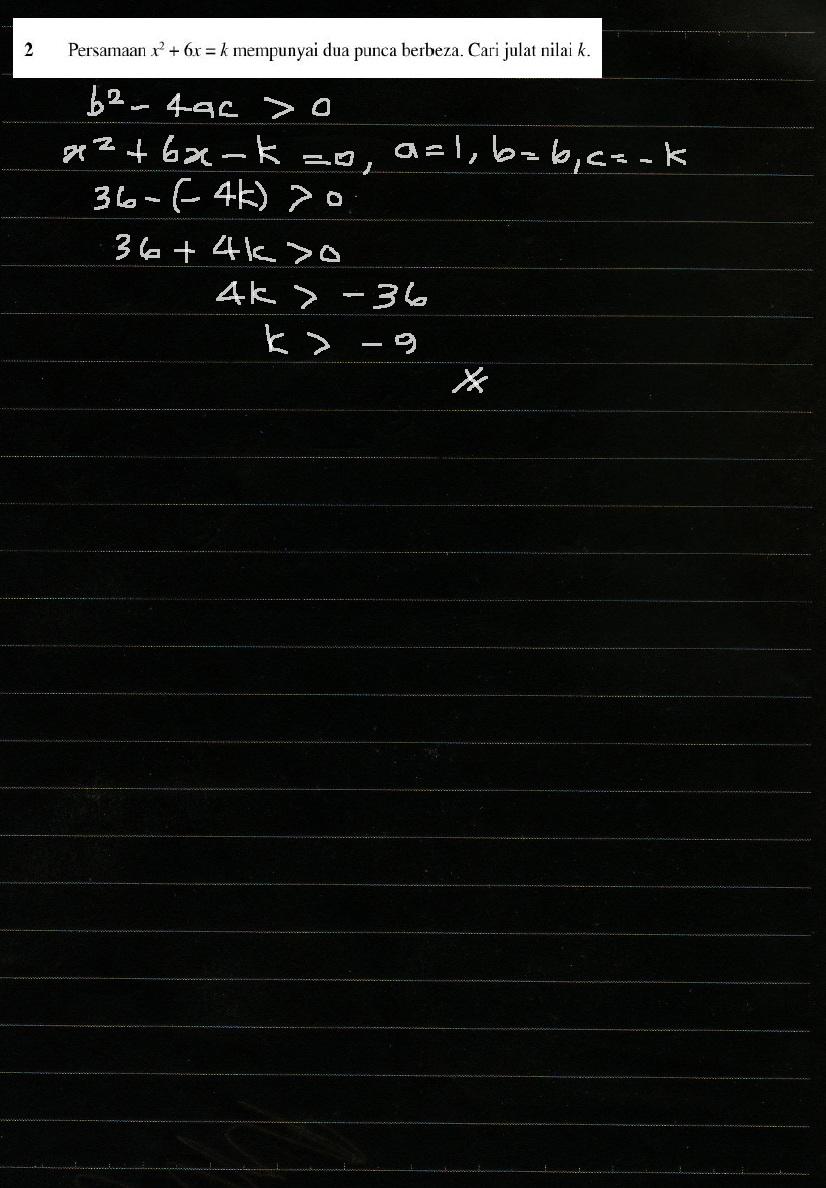 2 Persamaan x² + 6x = k mempunyai dua punca berbeza. Cari julat nilai k.
b² - 4ac > 0
x² + 6x - k = 0, a=1, b=6, c=-k
36 - (- 4k) > 0
36 + 4k > 0
4k > - 36
k > - 9